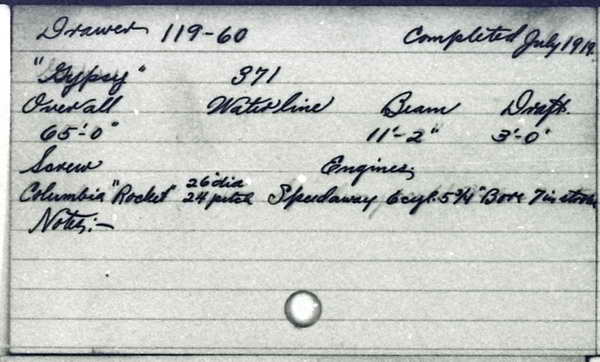 Drawer 119-60 Completed July 1919.
"Gypsy" 371
Overall Waterline Beam Draft.
65'-0" 11'-2" 3'-0"
Screw Engines;
Columbia "Rocket" 26" dia 24 pitch Speedaway 6 cyl. 5 3/4" Bore 7 in stroke
Notes:-